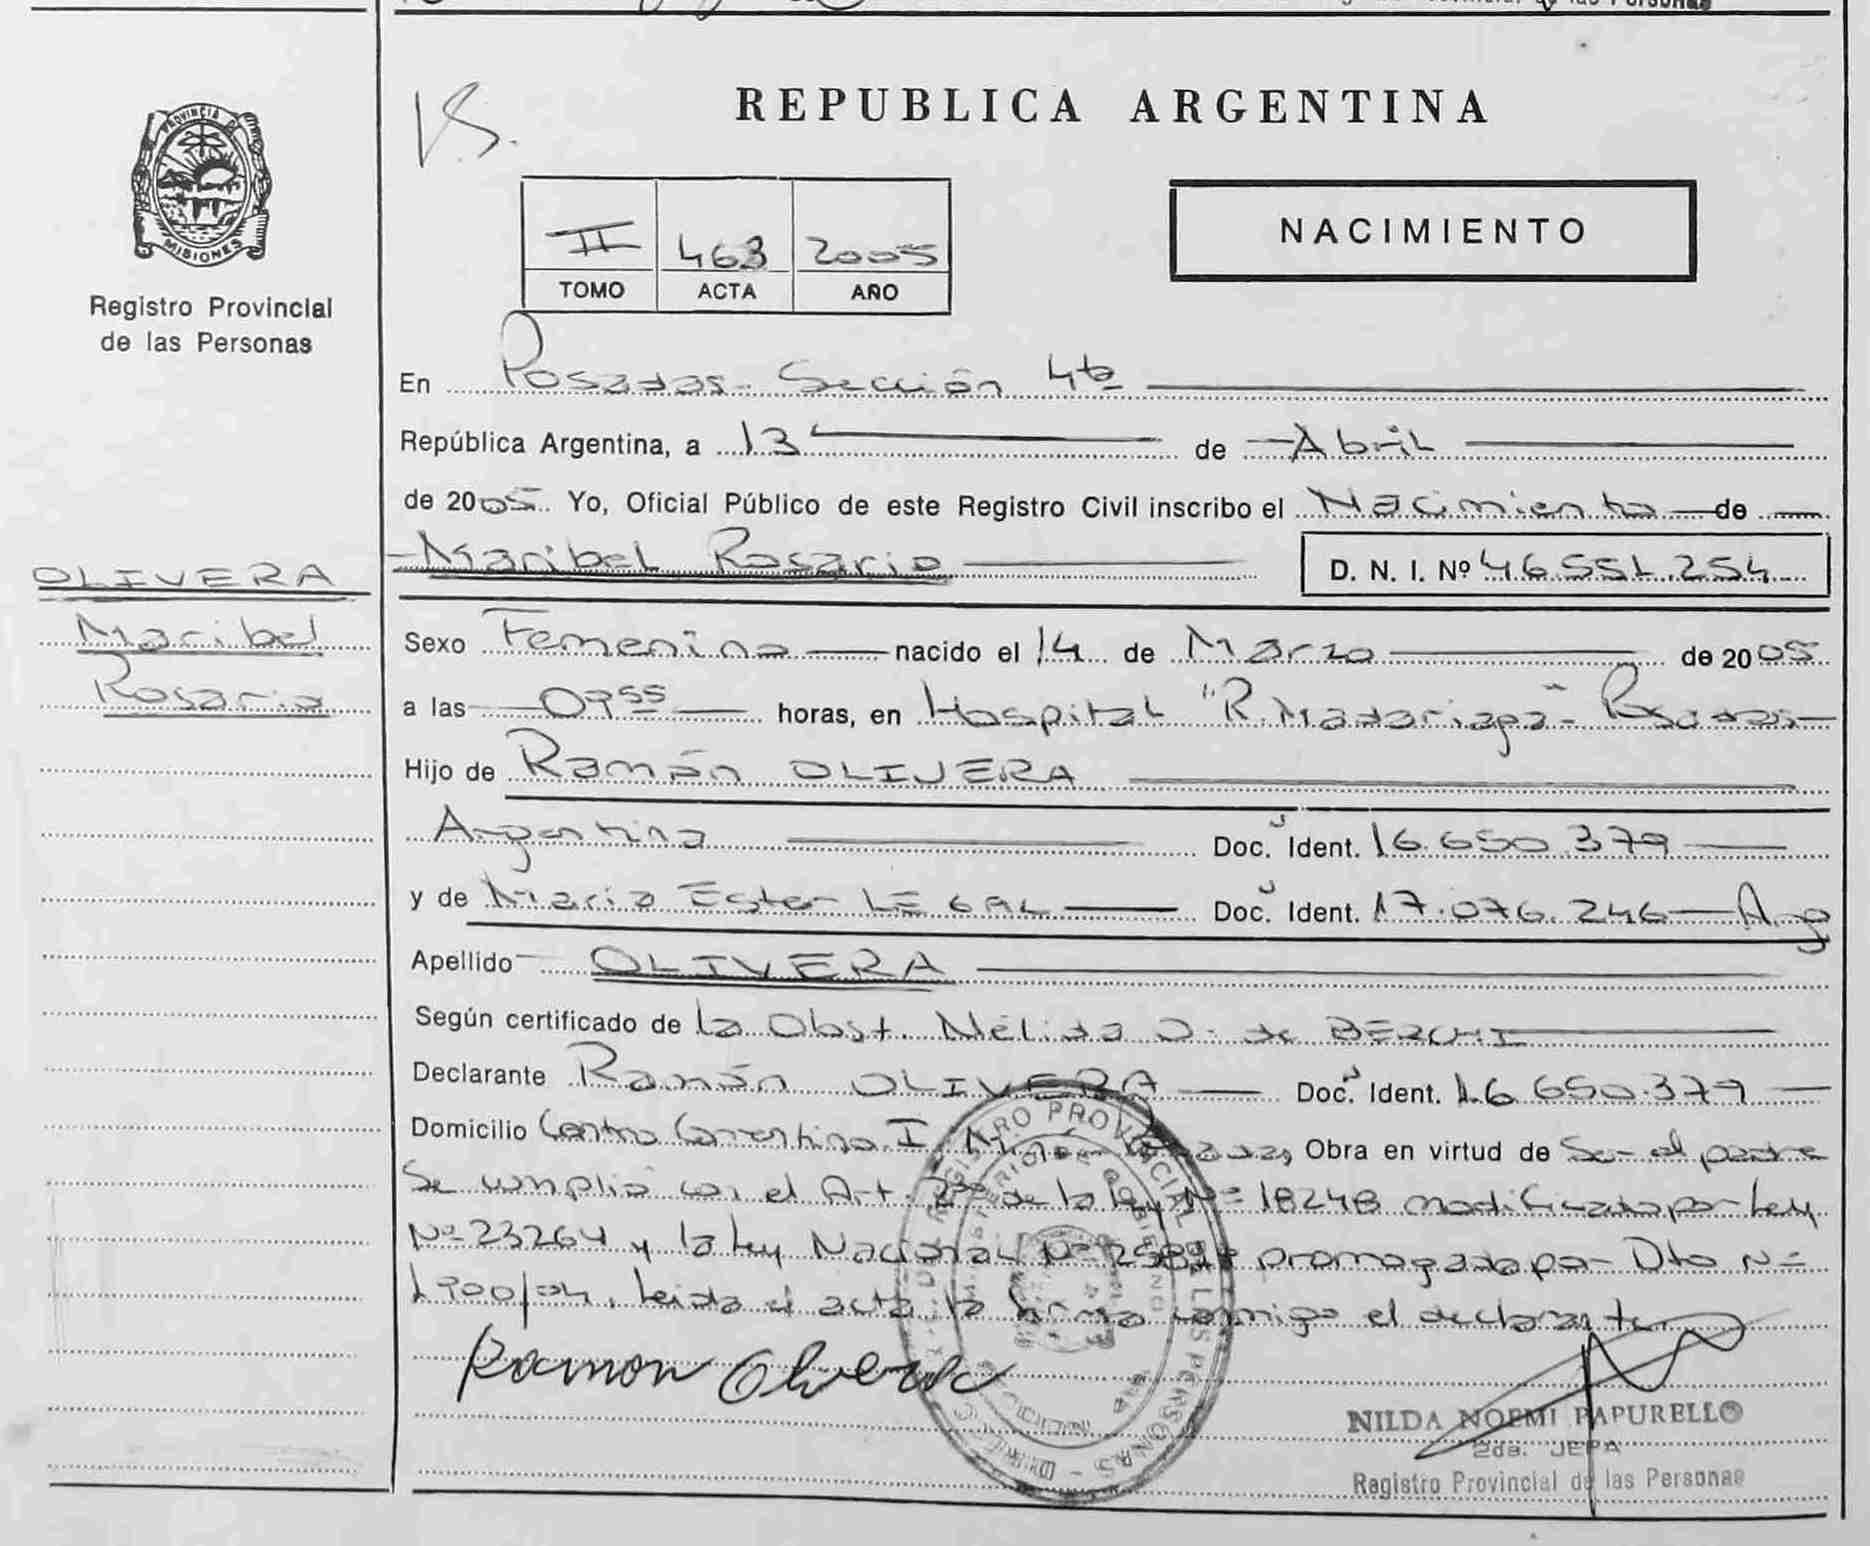 REPUBLICA ARGENTINA
V.S.
PROVINCIA DE
MISIONES
Registro Provincial
de las Personas
II 463 2005
TOMO ACTA AÑO
NACIMIENTO
En Posadas - Sección 4ta
República Argentina, a 13 de Abril
de 2005. Yo, Oficial Público de este Registro Civil inscribo el Nacimiento de
Maribel Rosario D. N. I. Nº 46.551.254
OLIVERA
Maribel
Rosario
Sexo Femenino nacido el 14 de Marzo de 2005
a las 09 55 horas, en Hospital "R. Madariaga" - Posadas
Hijo de Ramón OLIVERA
Argentina Doc. Ident. 16.650.379
y de Maria Ester LEGAL Doc. Ident. 17.076.246 Arg
Apellido OLIVERA
Según certificado de la Obst. Nélida O. de BERCHI
Declarante Ramón OLIVERA Doc. Ident. 16.650.379
Domicilio Centro Correntino I Obra en virtud de Ser el padre
Se cumplió con el Art. 2do de la ley Nº 18248 modificado por Ley
Nº 23264 y la ley Nacional Nº promogada por Dto Nº
1900/04. Leida el acta la firma conmigo el declarante.
Ramon Olivera
REGISTRO PROVINCIAL DE LAS PERSONAS
MINISTERIO DE GOBIERNO
NILDA NOEMI PAPURELLO
2da. JEFA
Registro Provincial de las Personas